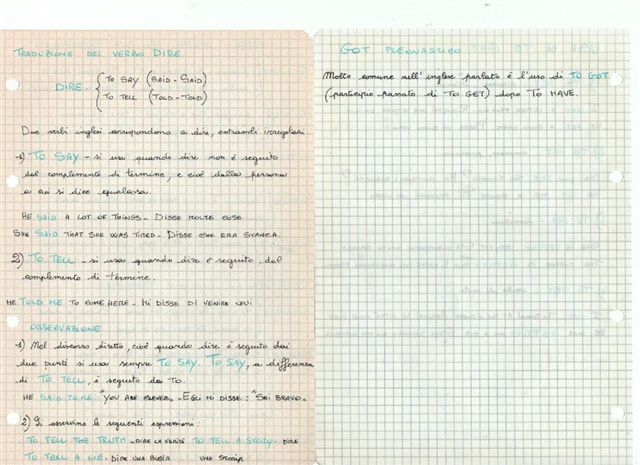 TRADUZIONE DEL VERBO DIRE
DIRE - { TO SAY (SAID - SAID)
TO TELL (TOLD - TOLD)
Due verbi inglesi corrispondono a dire, entrambi irregolari.
1) TO SAY - si usa quando dire non è seguito
dal complemento di termine, e cioè dalla persona
a cui si dice qualcosa.
HE SAID A LOT OF THINGS - DISSE MOLTE COSE
SHE SAID THAT SHE WAS TIRED - DISSE CHE ERA STANCA.
2) TO TELL - si usa quando dire è seguito dal
complemento di termine.
HE TOLD ME TO COME HERE - MI DISSE DI VENIRE QUI
OSSERVAZIONE
1) Nel discorso diretto, cioè quando dire è seguito dai
due punti si usa sempre TO SAY. TO SAY, a differenza
di TO TELL, è seguito da TO.
HE SAID TO ME: "YOU ARE CLEVER" - EGLI MI DISSE: "SEI BRAVO".
2) Si osservino le seguenti espressioni:
TO TELL THE TRUTH - DIRE LA VERITÀ TO TELL A STORY - DIRE
TO TELL A LIE - DIRE UNA BUGIA UNA STORIA
GOT PLEONASTICO
Molto comune nell'inglese parlato è l'uso di TO GOT
(participio passato di TO GET) dopo TO HAVE.